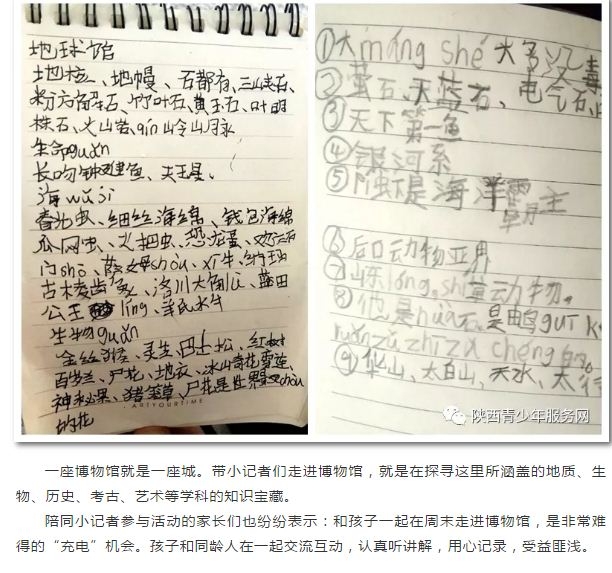 地球馆
地核、地幔、石都有、三峡石、
粉方解石、竹叶石、黄玉石、叶明
珠石、火山岩、qín岭山
生命guǎn
长吻钟健鱼、天王星、
海wǔ sī
春光虫、细丝海绵、钱包海绵
瓜网虫、火把虫、恐龙蛋、
古棱齿象、洛川大角
公王 líng、羊氏水牛
生物guǎn
金丝猴、灵芝、巴山松、红
百岁兰、尸花、地衣、冰山奇花雪莲、
神秘果、猪笼草、尸花是世界最chòu
的花
ARTYOURTIME
①大máng shé 大多没毒
②萤石、天蓝石、电气石、
③天下第一鱼
④银河系
⑤ 虾是海洋霸主
⑥后口动物亚界
⑦山东lóng, shí草动物。
⑧他是huà石是鸭
zǔ zhī zǔ chéng的。
⑨华山、太白山、天水、太行
陕西青少年服务网
一座博物馆就是一座城。带小记者们走进博物馆，就是在探寻这里所涵盖的地质、生
物、历史、考古、艺术等学科的知识宝藏。
陪同小记者参与活动的家长们也纷纷表示：和孩子一起在周末走进博物馆，是非常难
得的“充电”机会。孩子和同龄人在一起交流互动，认真听讲解，用心记录，受益匪浅。